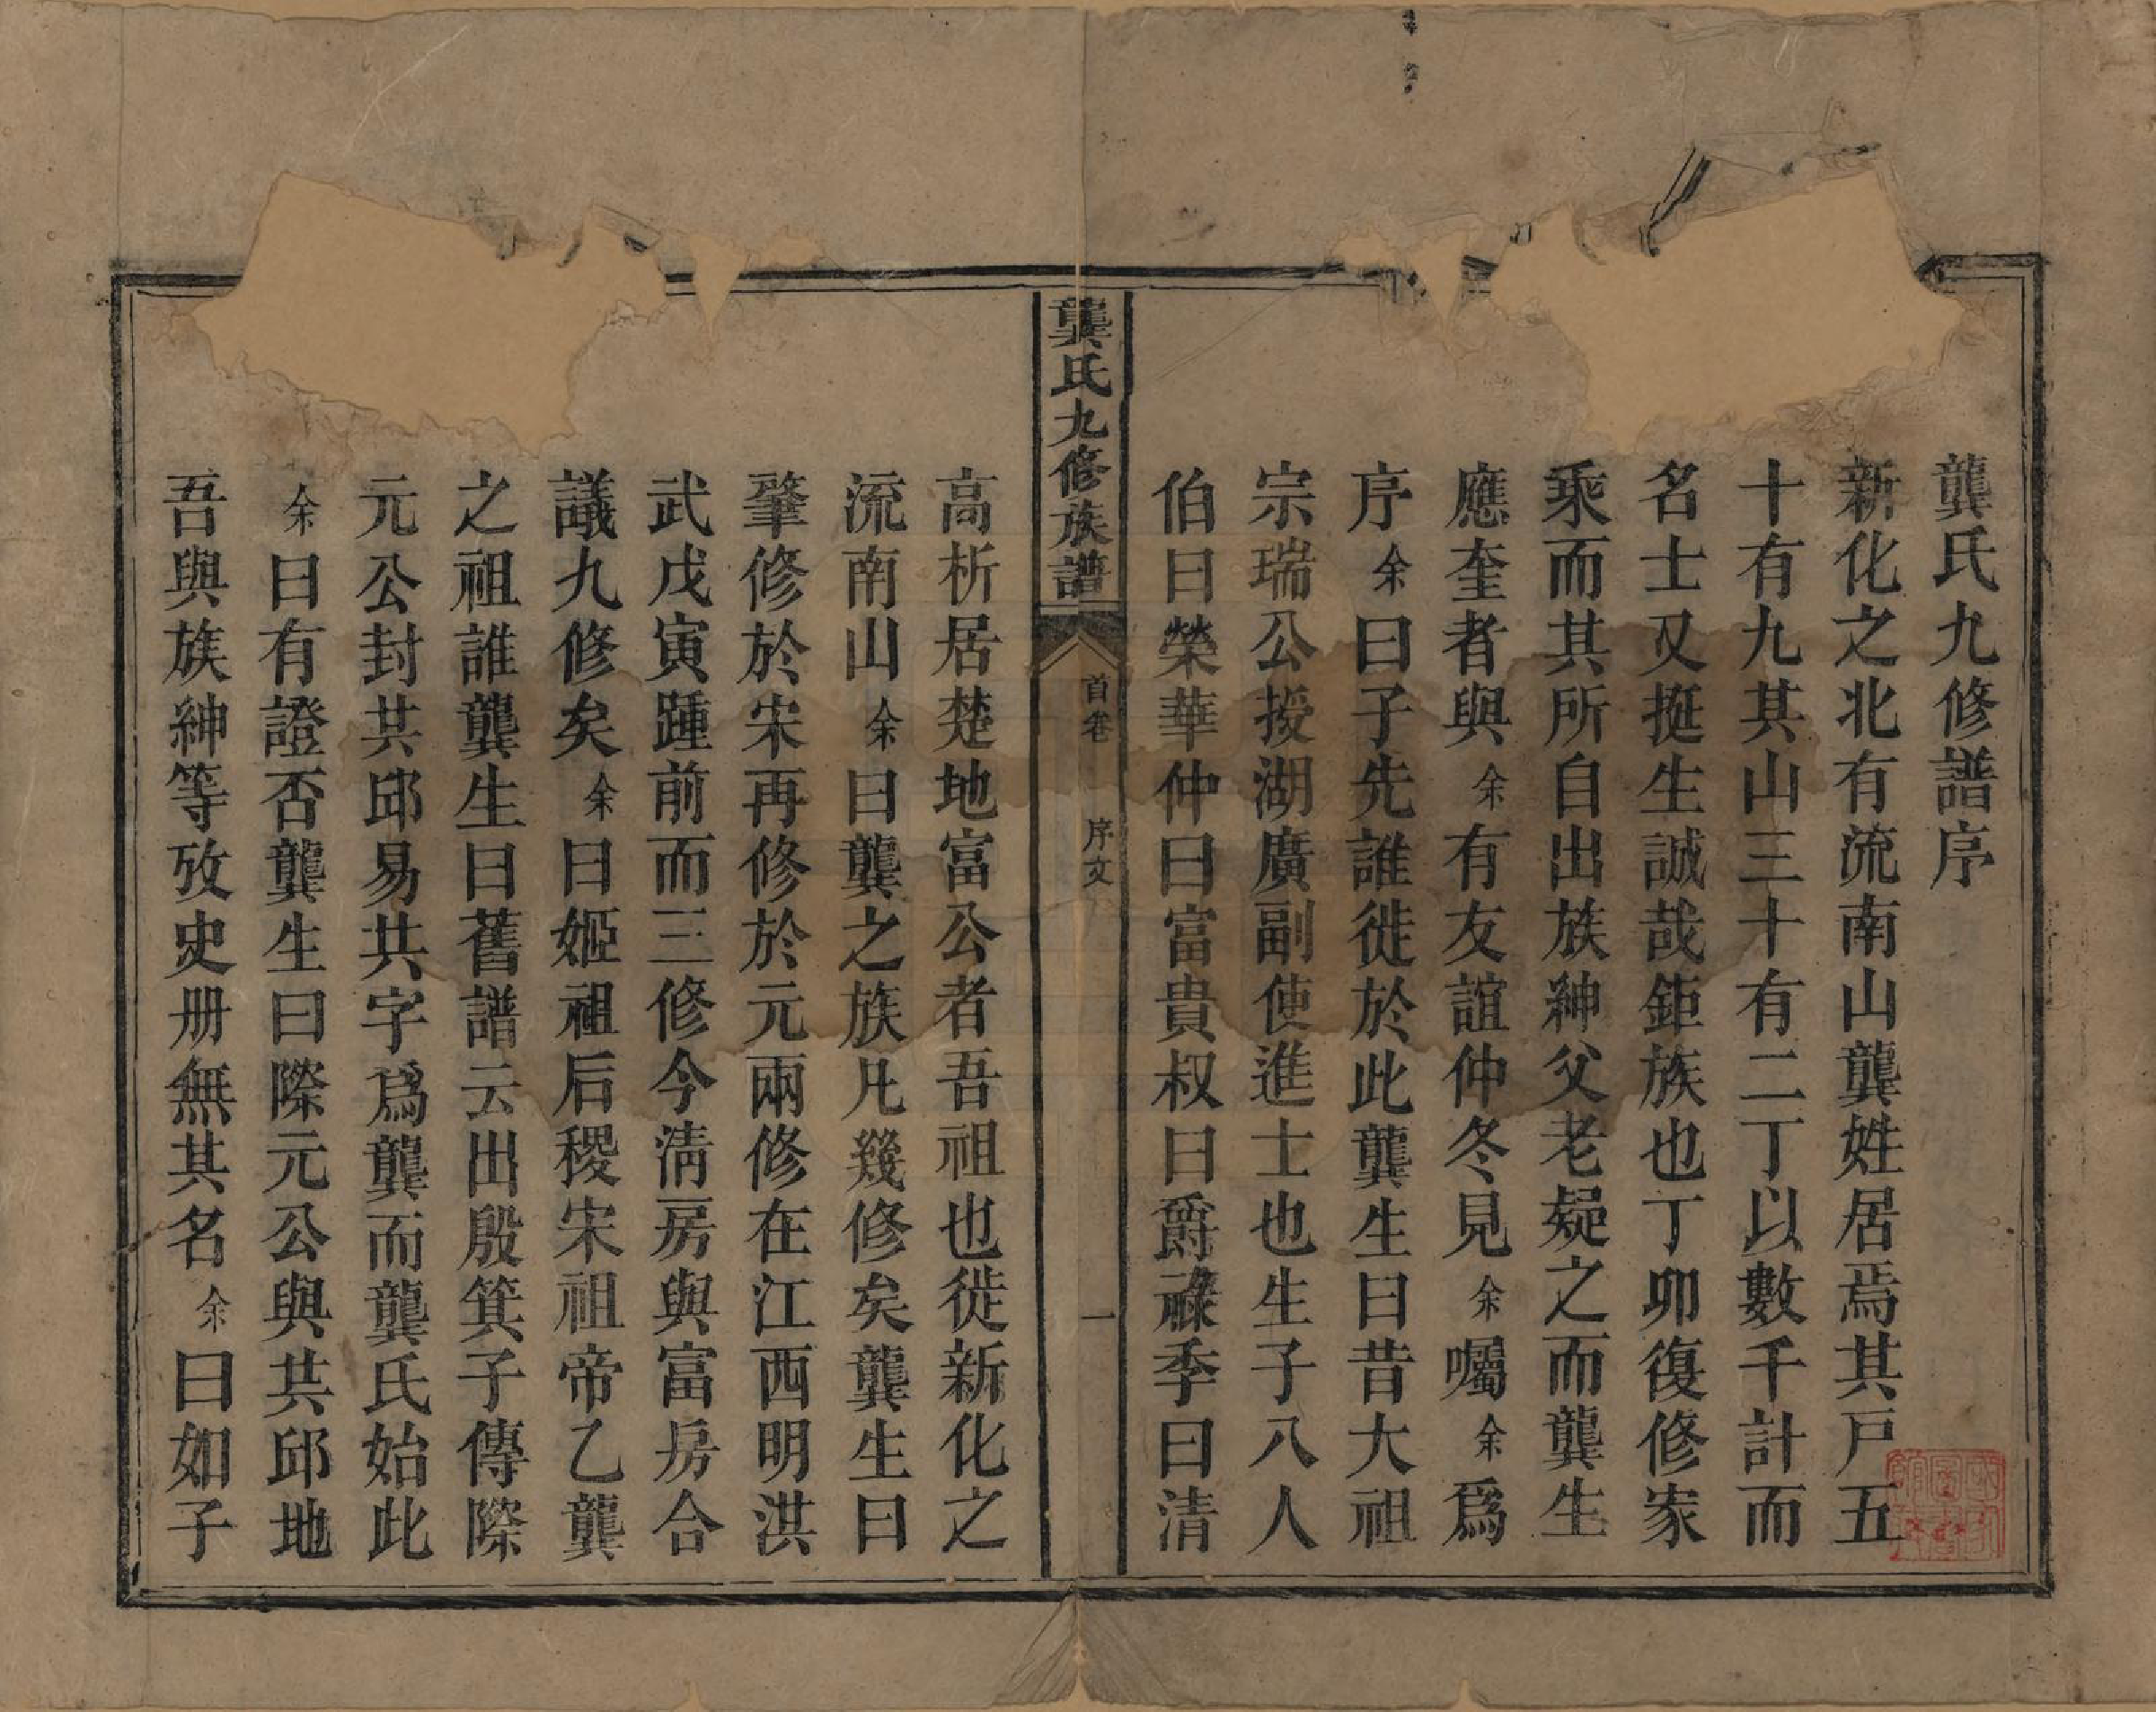 龔氏九修譜序
新化之北有流南山龔姓居焉其戸五
十有九其山三十有二丁以數千計而
名士又挺生誠哉鉅族也丁卯復修家
乘而其所自出族紳父老疑之而龔生
應奎者與余有友誼仲冬見余囑余爲
序余曰子先誰徙於此龔生曰昔大祖
宗瑞公授湖廣副使進士也生子八人
伯曰榮華仲曰富貴叔曰爵祿季曰清
龔氏九修族譜
首卷 序文 一
高析居楚地富公者吾祖也徙新化之
流南山余曰龔之族凡幾修矣龔生曰
肇修於宋再修於元兩修在江西明洪
武戊寅踵前而三修今清房與富房合
議九修矣余曰姬祖后稷宋祖帝乙龔
之祖誰龔生曰舊譜云出殷箕子傳際
元公封共邱易共字爲龔而龔氏始此
余曰有證否龔生曰際元公與共邱地
吾與族紳等攷史册無其名余曰如子